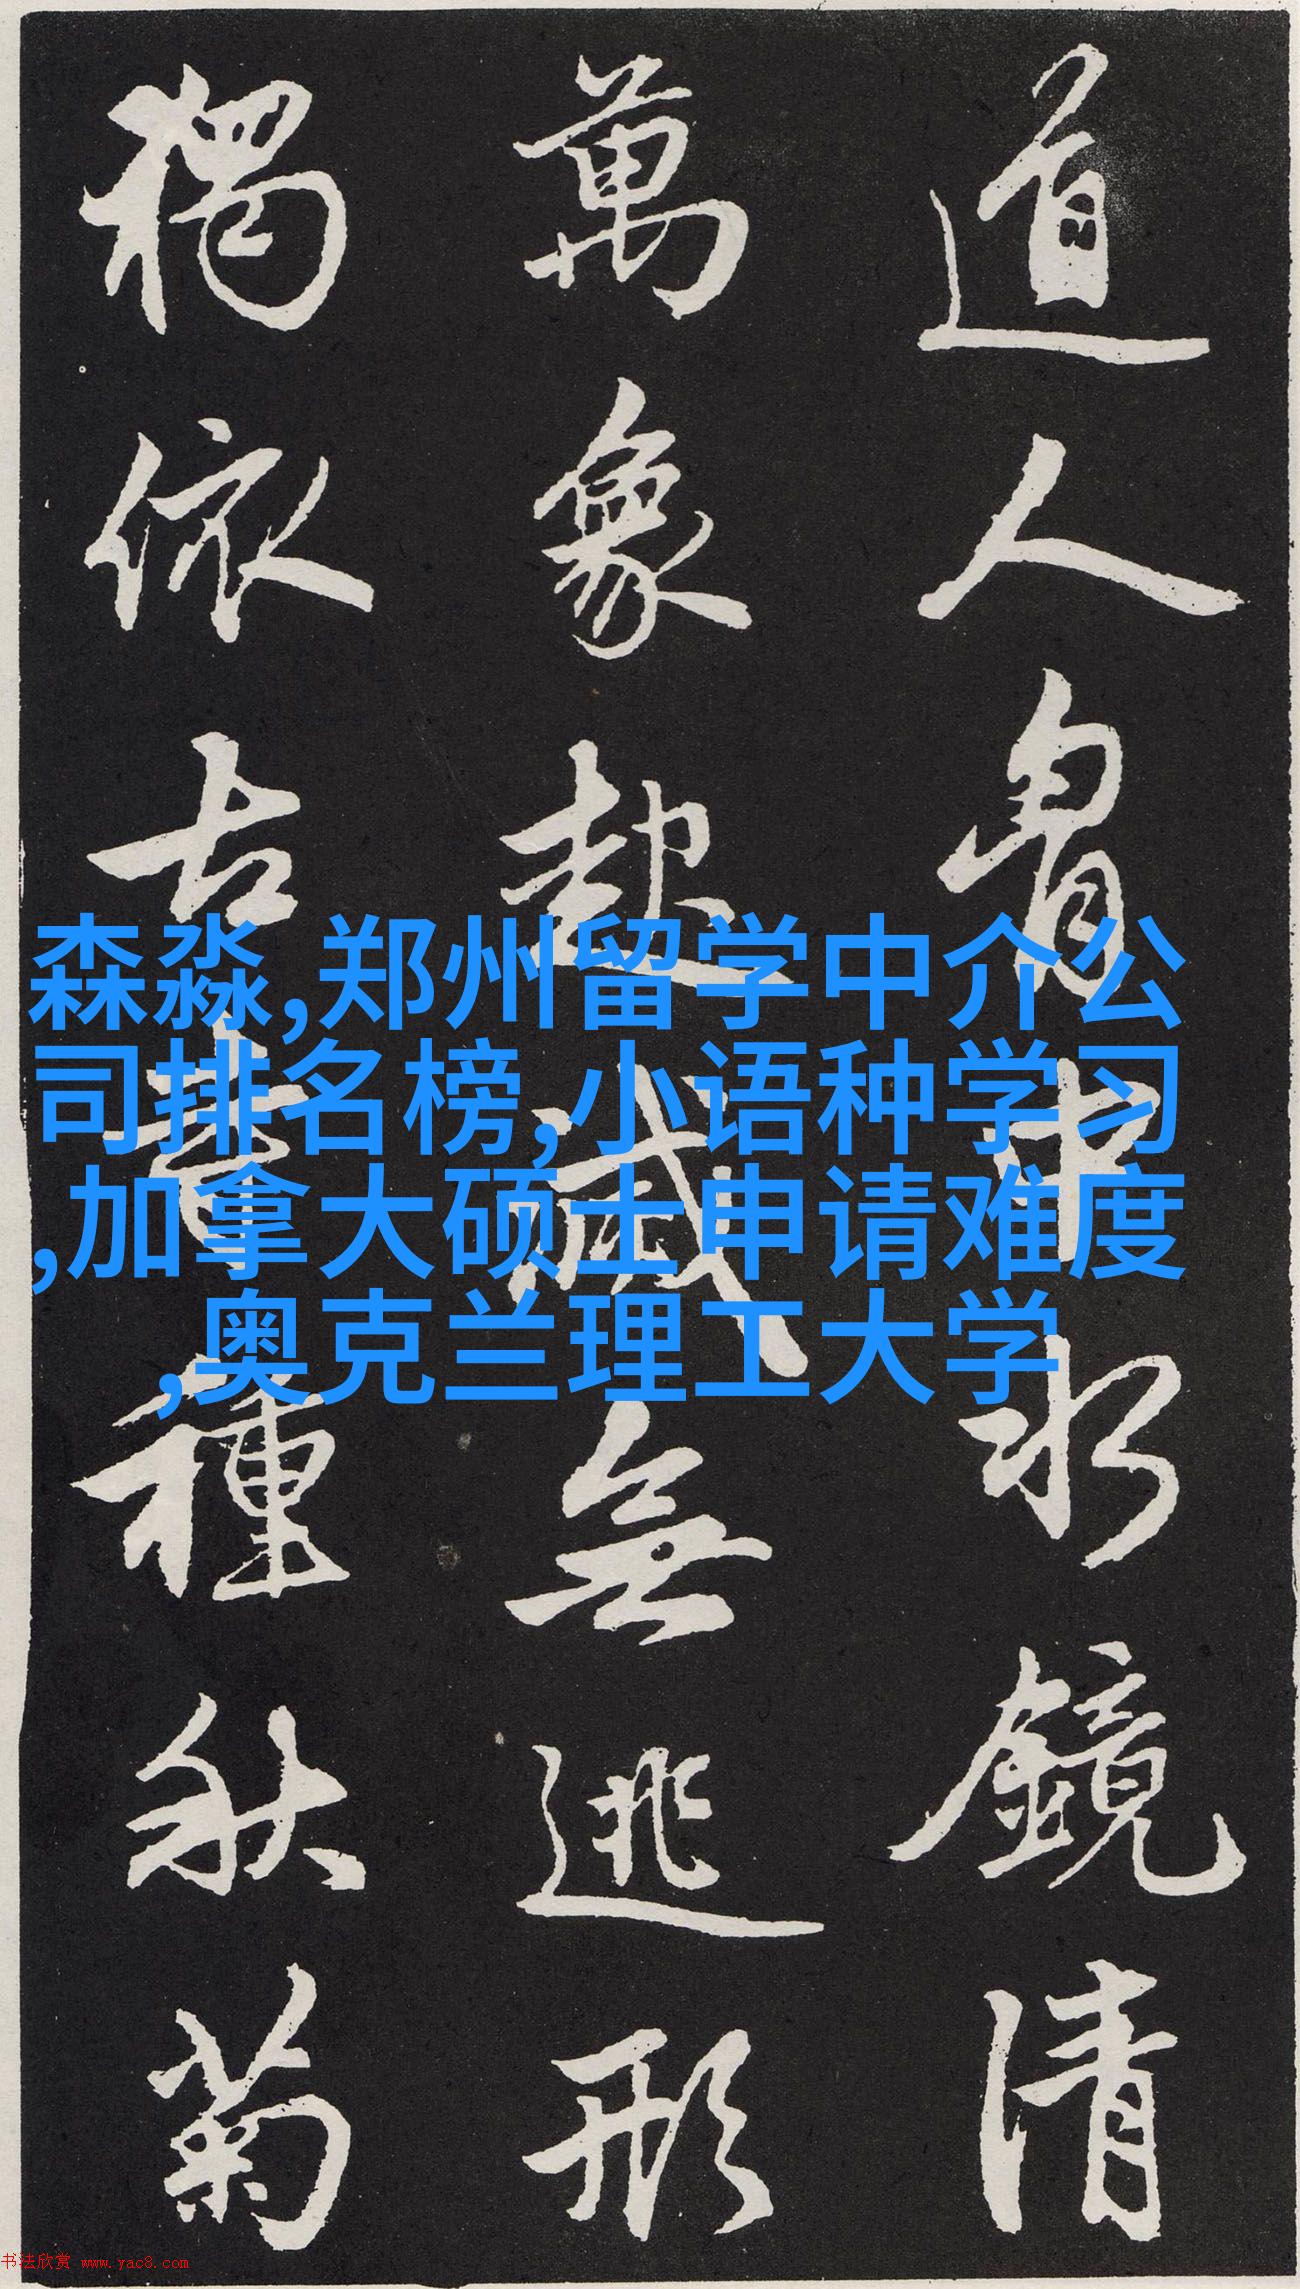 道人胷中水鏡清
萬象起滅無逃形
獨依古寺種秋菊
森淼,郑州留学中介公
司排名榜,小语种学习
,加拿大硕士申请难度
,奥克兰理工大学
书法欣赏 www.yac8.com